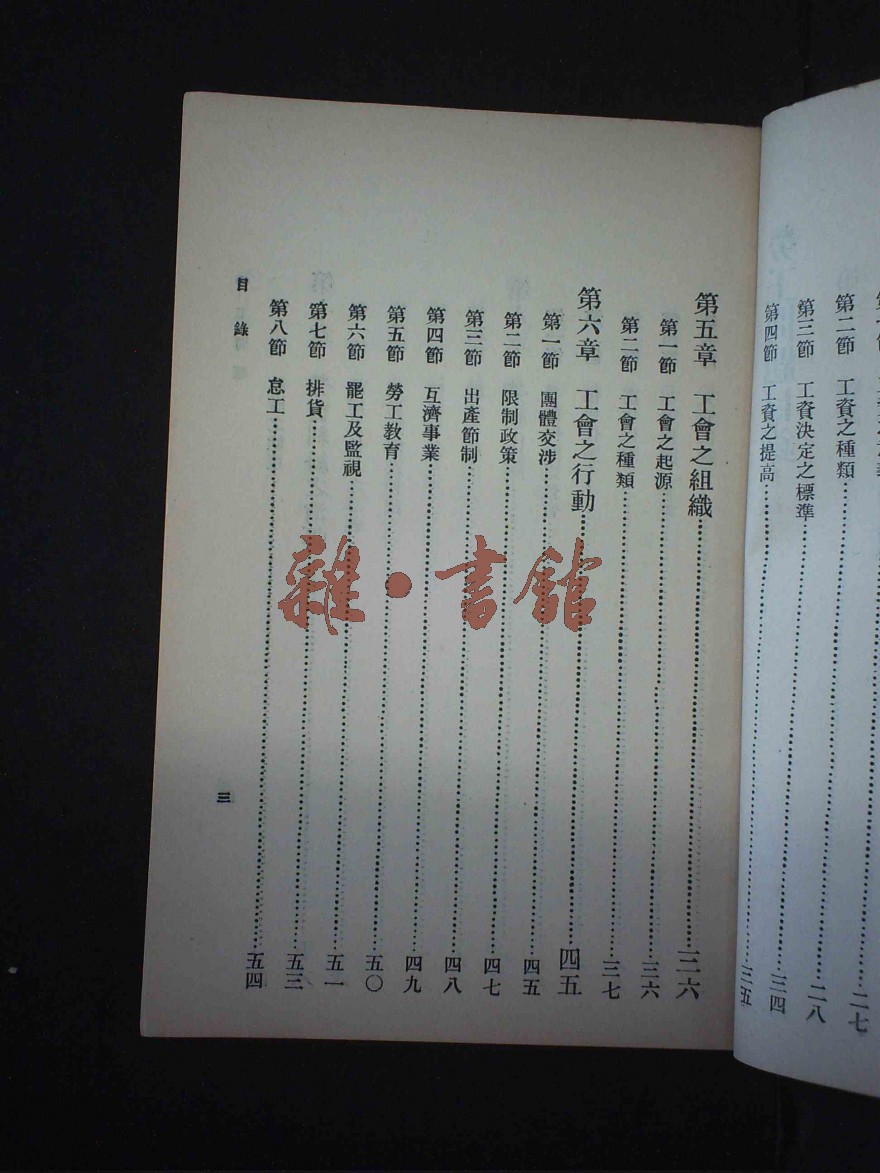 第二節 工資之種類……二七
第三節 工資決定之標準……二八
第四節 工資之提高……三四
三五
第五章 工會之組織……三六
第一節 工會之起源……三六
第二節 工會之種類……三七
第六章 工會之行動……四五
第一節 團體交涉……四五
第二節 限制政策……四七
第三節 出產節制……四八
第四節 互濟事業……四九
第五節 勞工教育……五〇
第六節 罷工及監視……五一
第七節 排貨……五三
第八節 怠工……五四
目錄
三
雜·書館